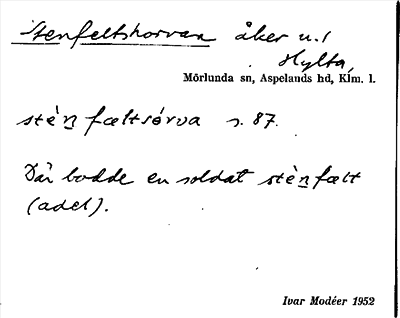 Stenfeltshorvan åker u./
Hylta,
Mörlunda sn, Aspelands hd, Klm. l.
stèn fæltsórva s. 87.
Där bodde en soldat stènfælt
(adel).
Ivar Modéer 1952